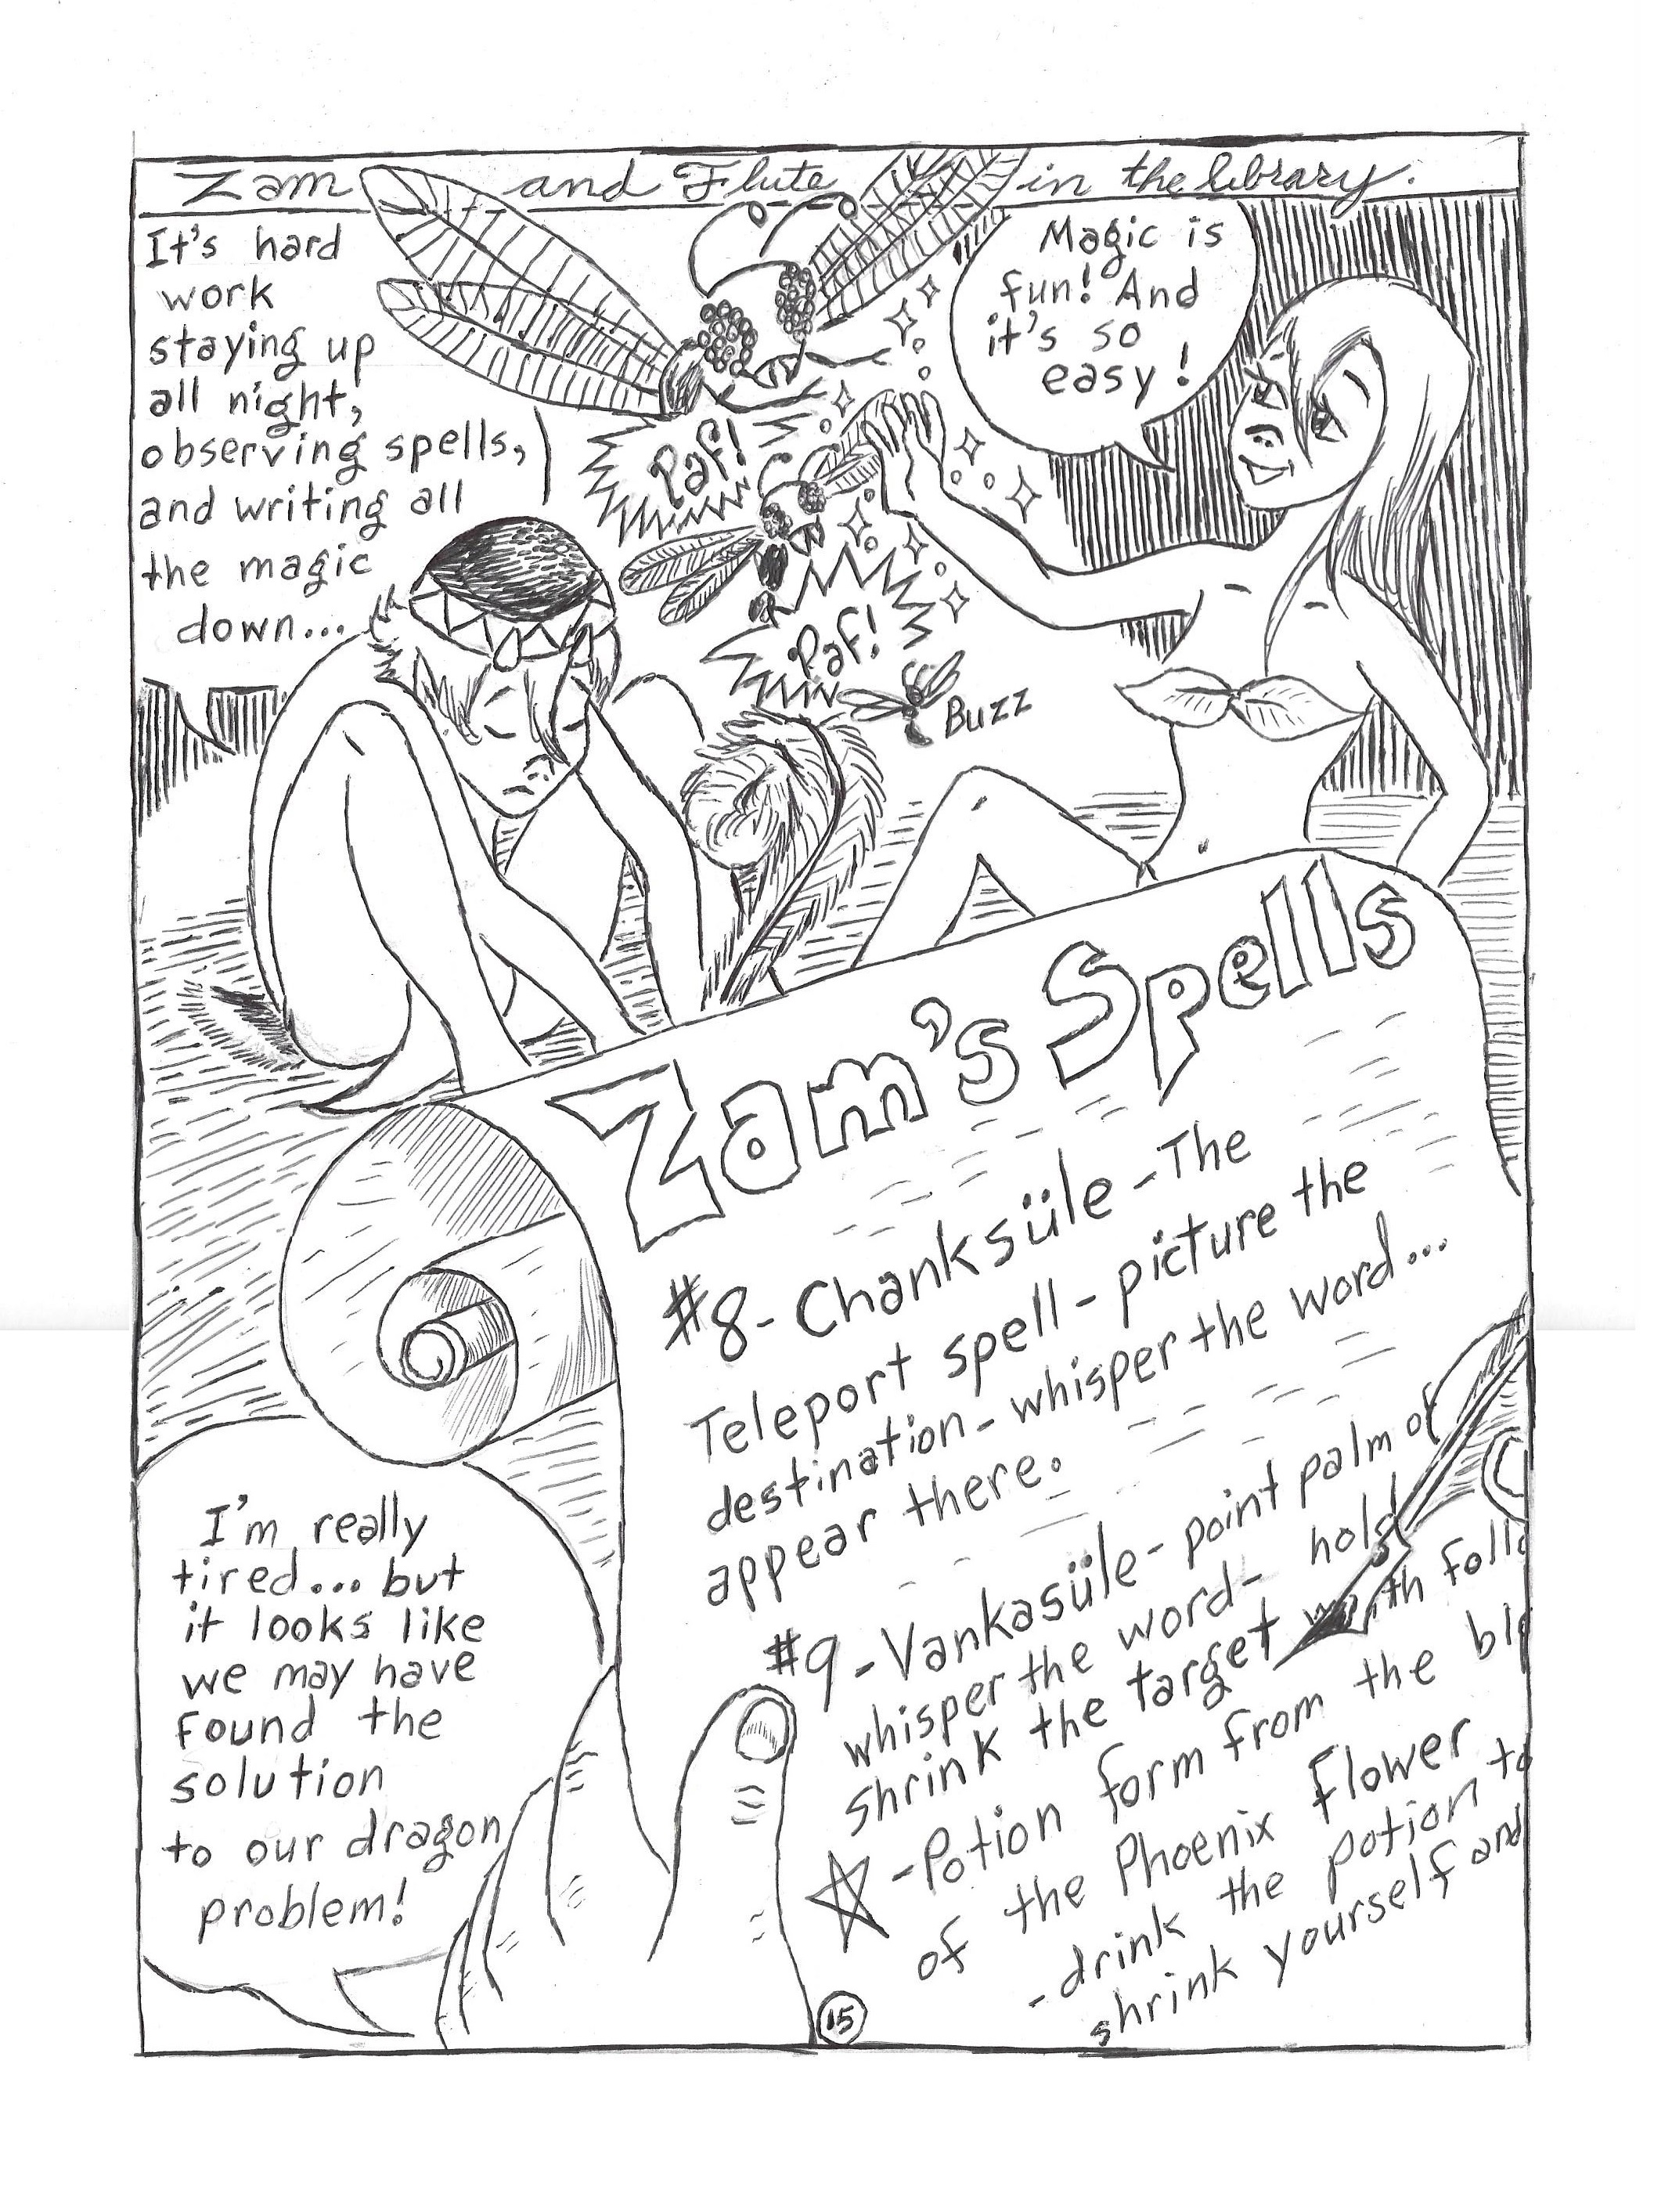 Zam and Flute in the library.
It's hard
work
staying up
all night,
observing spells,
and writing all
the magic
down...
Magic is
fun! And
it's so
easy!
Paf!
Paf!
Buzz
Zam's Spells
#8-Chanksüle-The
Teleport spell-picture the
destination-whisper the word...
appear there.
#9-Vankasüle-point palm of
whisper the word- hold
shrink the target
-Potion form from the
of the Phoenix Flower
-drink the potion to
shrink yourself and
I'm really
tired... but
it looks like
we may have
found the
solution
to our dragon
problem!
15